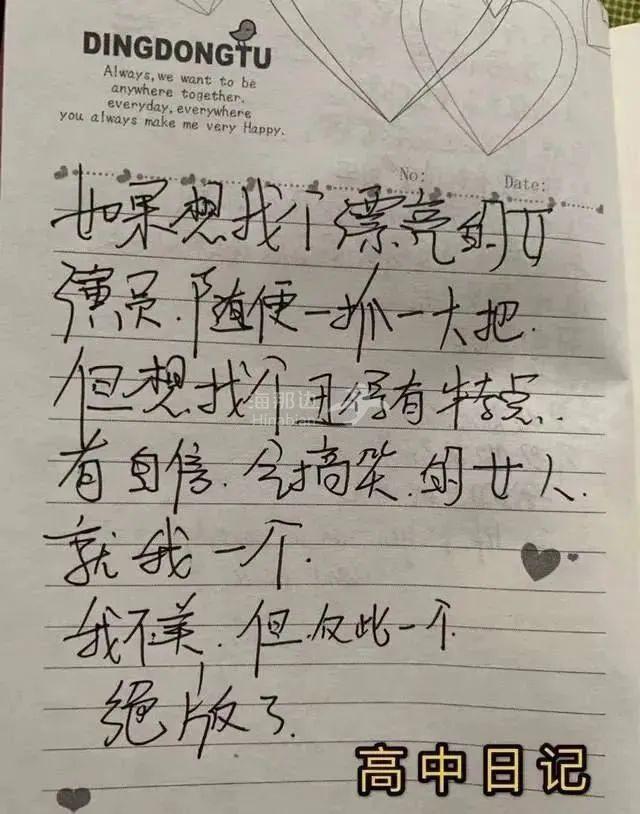 DINGDONGTU
Always, we want to be
anywhere together.
everyday, everywhere
you always make me very Happy.
No:
Date:
如果想找个漂亮的女
演员.随便一抓一大把.
但想找个丑得有特点.
海那边
Hinabian
有自信.会搞笑.的女人.
就我一个.
我不美.但.仅此一个.
绝版了.
高中日记